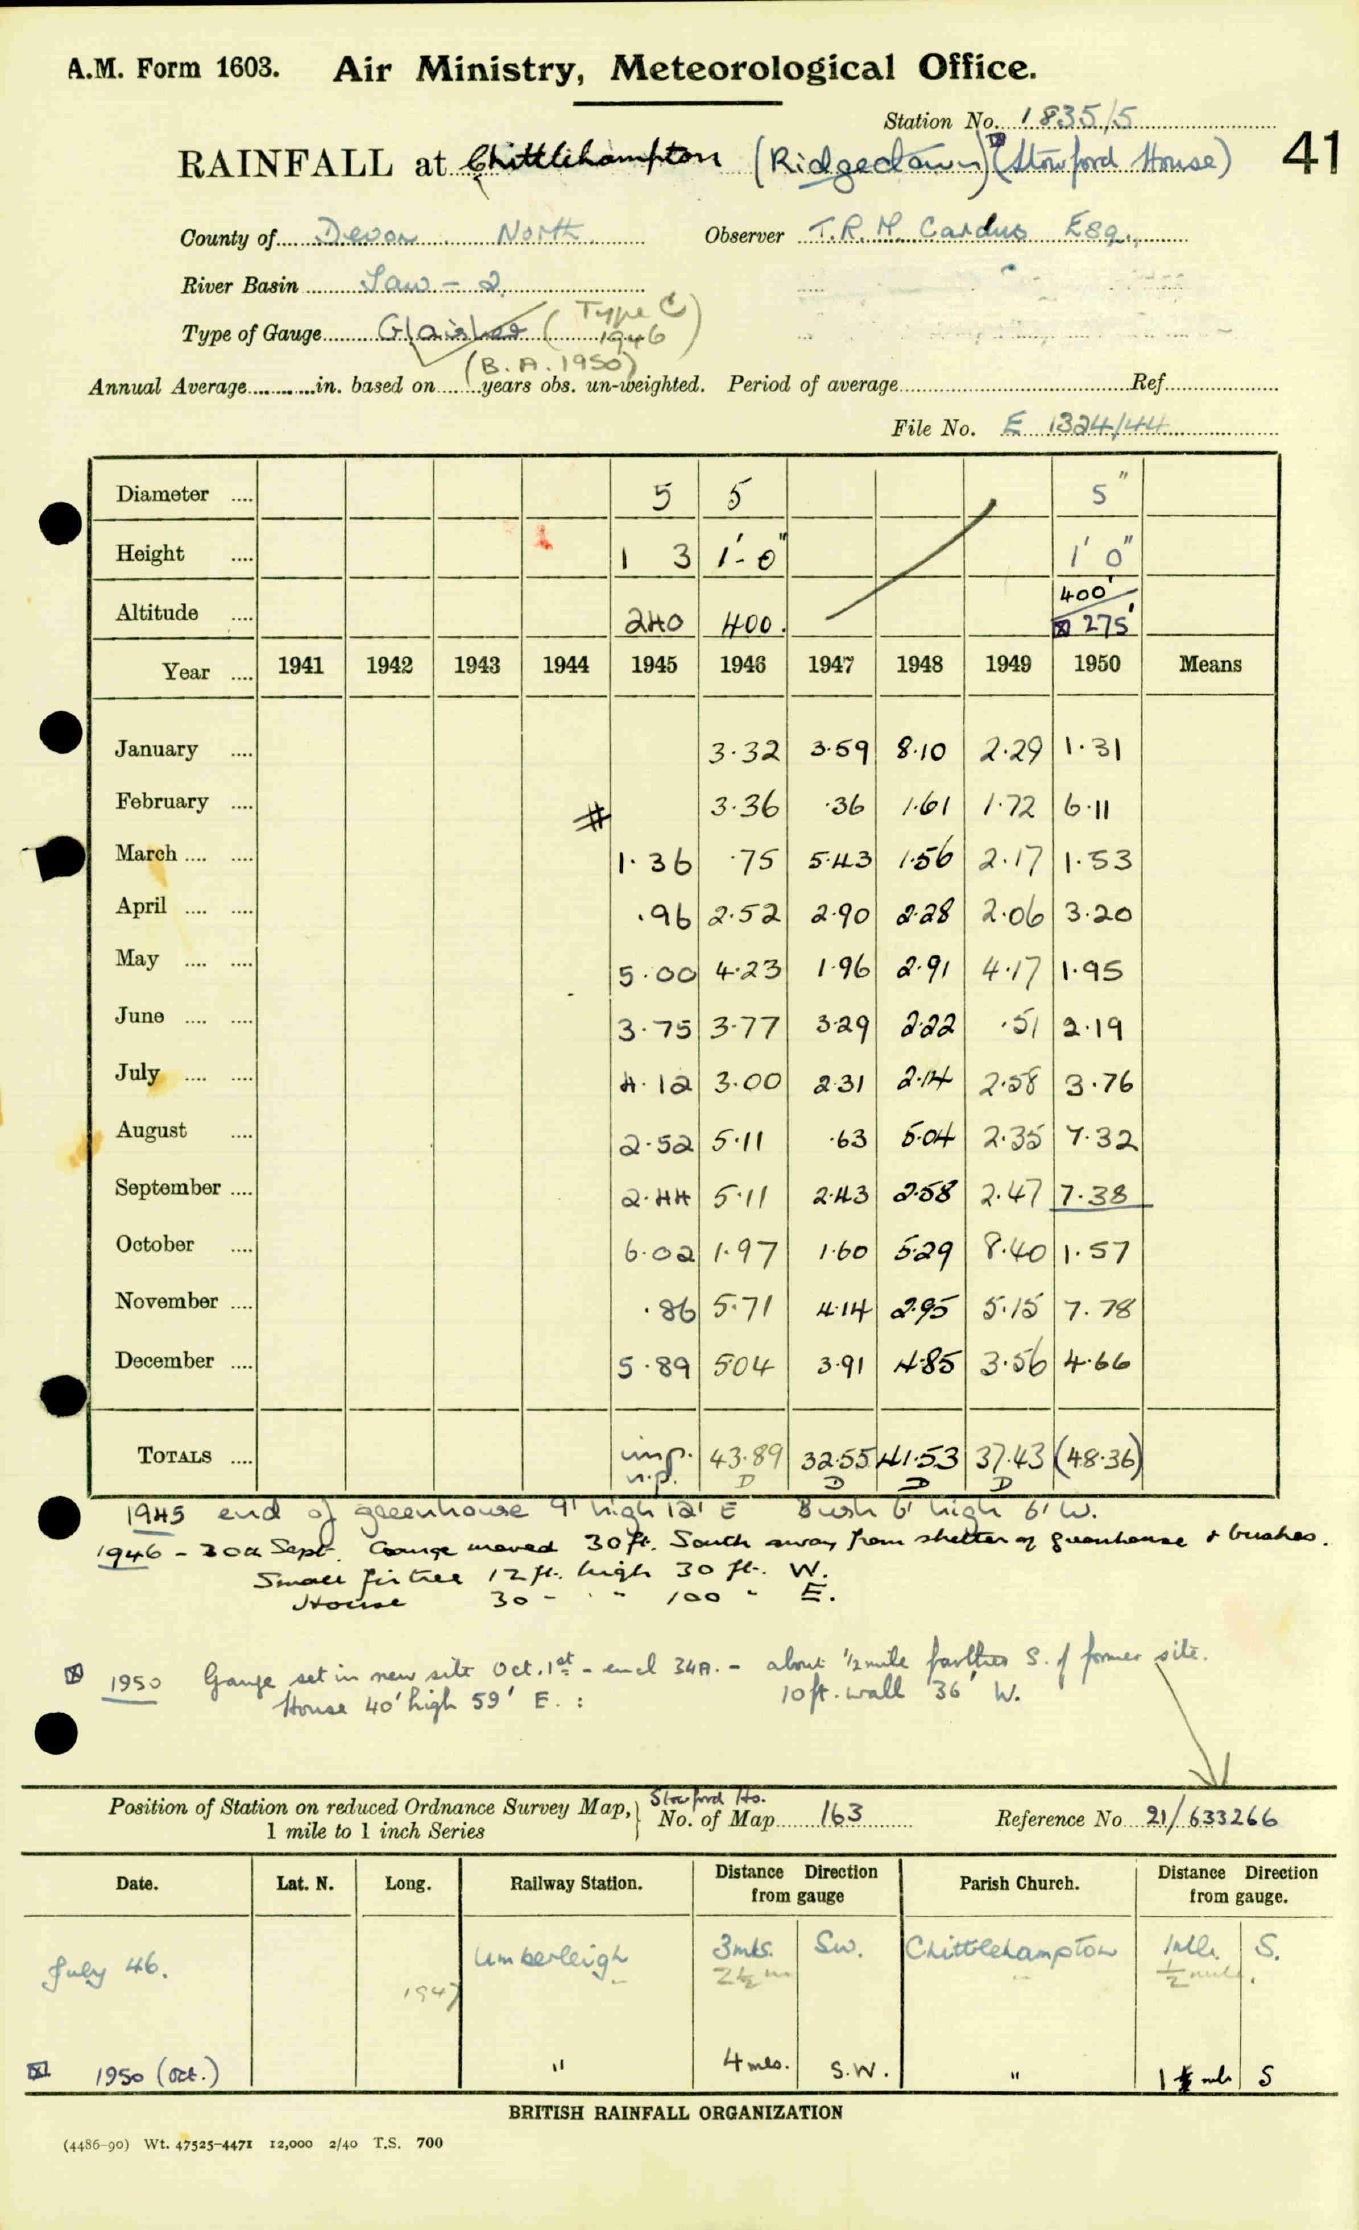 A.M. Form 1603. Air Ministry, Meteorological Office.
Station No. 1835/5
RAINFALL at Chittlehampton (Ridgedown) (Stowford House) 41
County of Devon North Observer T.R.M. Cardus Esq.
River Basin Taw - 2
Type of Gauge Glaisher (Type C 1946)
(B.A. 1950)
Annual Average in. based on years obs. un-weighted. Period of average Ref.
File No. E 1324/44
Diameter 5 5 5"
Height 1 3 1'-0" 1' 0"
Altitude 240 400. 400' 275'
Year 1941 1942 1943 1944 1945 1946 1947 1948 1949 1950 Means
January 3.32 3.59 8.10 2.29 1.31
February # 3.36 .36 1.61 1.72 6.11
March 1.36 .75 5.43 1.56 2.17 1.53
April .96 2.52 2.90 2.28 2.06 3.20
May 5.00 4.23 1.96 2.91 4.17 1.95
June 3.75 3.77 3.29 2.22 .51 2.19
July 4.12 3.00 2.31 2.14 2.58 3.76
August 2.52 5.11 .63 5.04 2.35 7.32
September 2.44 5.11 2.43 2.58 2.47 7.38
October 6.02 1.97 1.60 5.29 8.40 1.57
November .86 5.71 4.14 2.95 5.15 7.78
December 5.89 5.04 3.91 4.85 3.56 4.66
TOTALS imp. 43.89 32.55 41.53 37.43 (48.36)
n.p. D D D D
1945 end of greenhouse 9' high 12' E Bush 6' high 6' W.
1946 - 30th Sept. Gauge moved 30 ft. South away from shelter of greenhouse & bushes.
Small fir tree 12 ft. high 30 ft. W.
House 30 " " 100 " E.
1950 Gauge set in new site Oct. 1st - encl 34A. - about 1/2 mile farther S. of former site.
House 40' high 59' E. : 10 ft. wall 36' W.
Position of Station on reduced Ordnance Survey Map, Stowford Ho.
1 mile to 1 inch Series No. of Map 163 Reference No 21/633266
Date. Lat. N. Long. Railway Station. Distance Direction from gauge Parish Church. Distance Direction from gauge.
July 46. Umberleigh 3 mls. SW. Chittlehampton 1 mle. S.
1947 " 2½ m " ½ mile.
1950 (Oct.) " 4 mls. S.W. " S
BRITISH RAINFALL ORGANIZATION
(4486-90) Wt. 47525-4471 12,000 2/40 T.S. 700